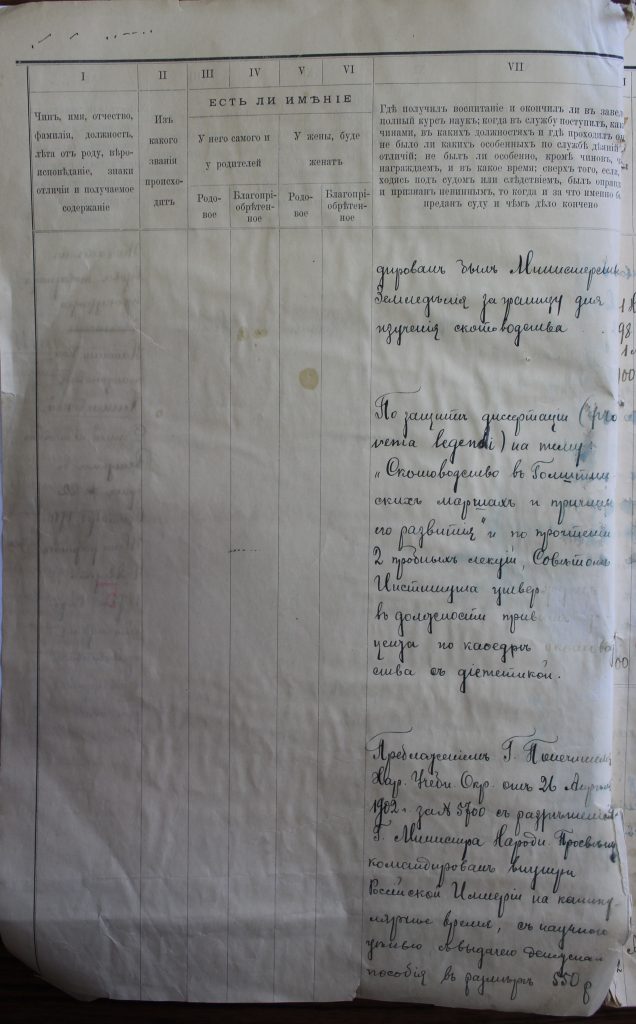 I
II
III
IV
V
VI
VII
Чинъ, имя, отчество,
фамилія, должность,
лѣта отъ роду, вѣро-
исповѣданіе, знаки
отличія и получаемое
содержаніе
Изъ
какого
званія
происхо-
дитъ
ЕСТЬ ЛИ ИМѢНІЕ
У него самого и
у родителей
У жены, буде
женатъ
Родо-
вое
Благопрі-
обрѣтен-
ное
Родо-
вое
Благопрі-
обрѣтен-
ное
Гдѣ получилъ воспитаніе и окончилъ ли въ завед
полный курсъ наукъ; когда въ службу поступилъ, как
чинами, въ какихъ должностяхъ и гдѣ проходилъ
не было ли какихъ особенныхъ по службѣ дѣяній
отличій; не былъ ли особенно, кромѣ чиновъ,
награждаемъ, и въ какое время; сверхъ того, если,
ходясь подъ судомъ или слѣдствіемъ, былъ оправд
и признанъ невиннымъ, то когда и за что именно
преданъ суду и чѣмъ дѣло кончено
дированъ былъ Министерств
Земледѣлія заграницу для
изученія скотоводства
По защитѣ диссертаціи (pro
venia legendi) на тему
„Скотоводство въ Голштин
скихъ маршахъ и причины
его развитія" и по прочтеніи
2 пробныхъ лекцій, Совѣтомъ
Института утвер
въ должности прив
цента по каѳедрѣ
ства съ діэтетикой.
Предложеніемъ Г. Попечителя
Хар. Учебн. Окр. отъ 26 Апрѣля
1902 г. за № 5700 съ разрѣшенія
Г. Министра Народн. Просвѣщ
командированъ внутри
Россійской Имперіи на канику
лярное время, съ научною
цѣлью и выдачею
пособія въ размѣрѣ 550 р